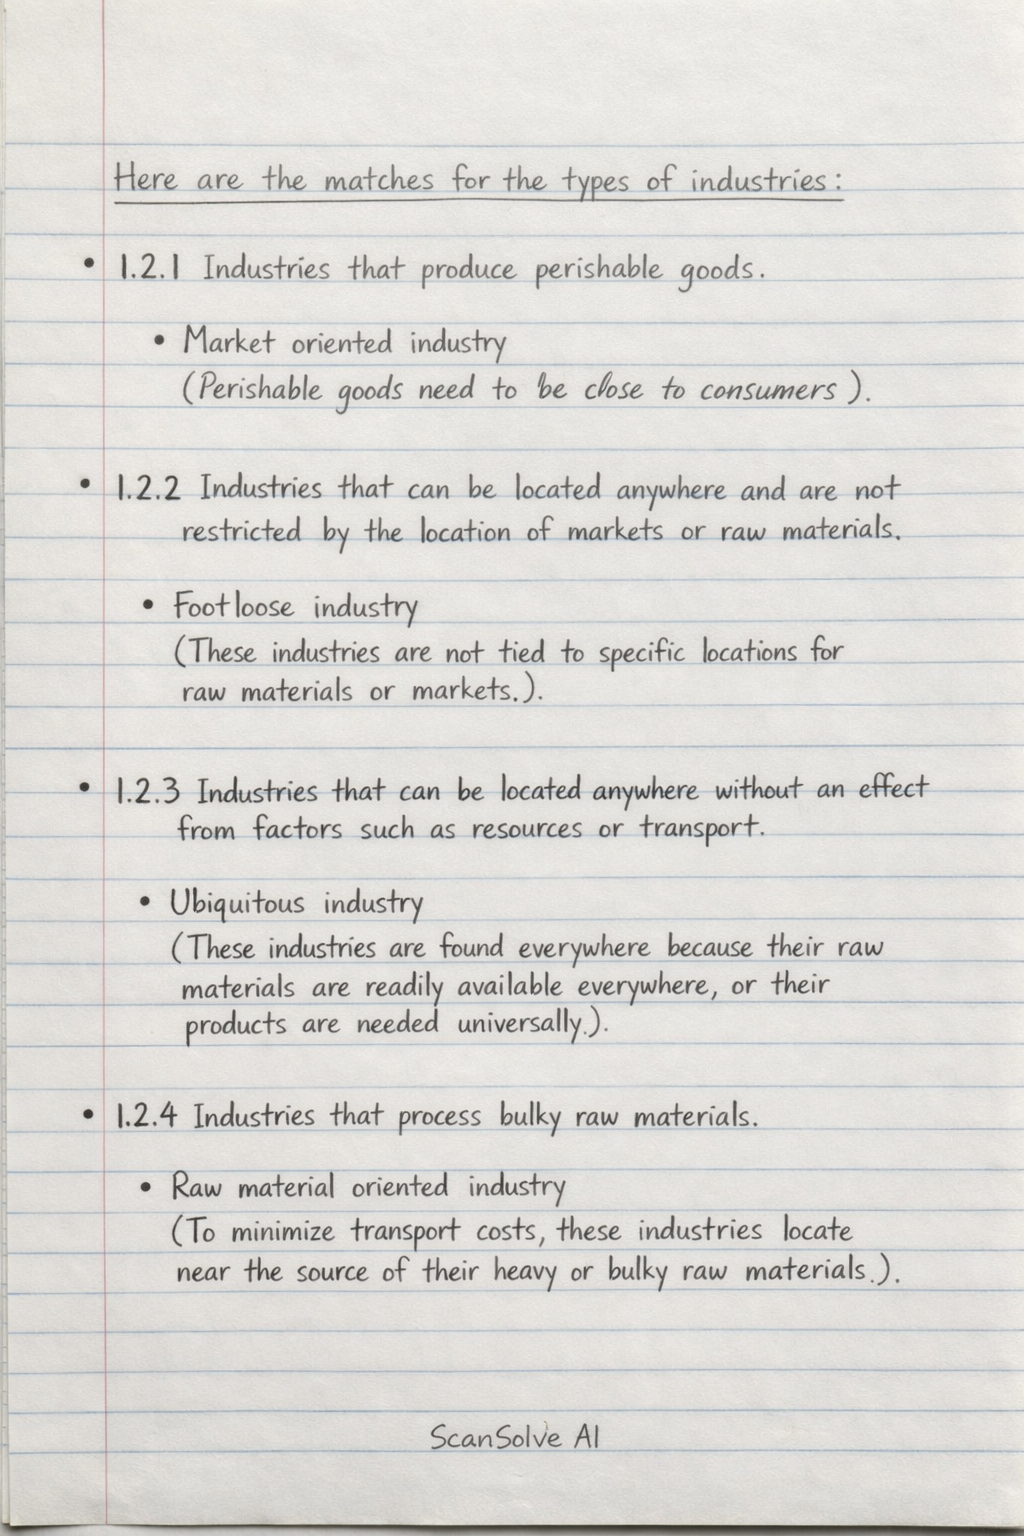 Here are the matches for the types of industries:
• 1.2.1 Industries that produce perishable goods.
• Market oriented industry
(Perishable goods need to be close to consumers ).
• 1.2.2 Industries that can be located anywhere and are not
restricted by the location of markets or raw materials.
• Footloose industry
(These industries are not tied to specific locations for
raw materials or markets.).
• 1.2.3 Industries that can be located anywhere without an effect
from factors such as resources or transport.
• Ubiquitous industry
(These industries are found everywhere because their raw
materials are readily available everywhere, or their
products are needed universally.).
• 1.2.4 Industries that process bulky raw materials.
• Raw material oriented industry
(To minimize transport costs, these industries locate
near the source of their heavy or bulky raw materials.).
ScanSolve AI